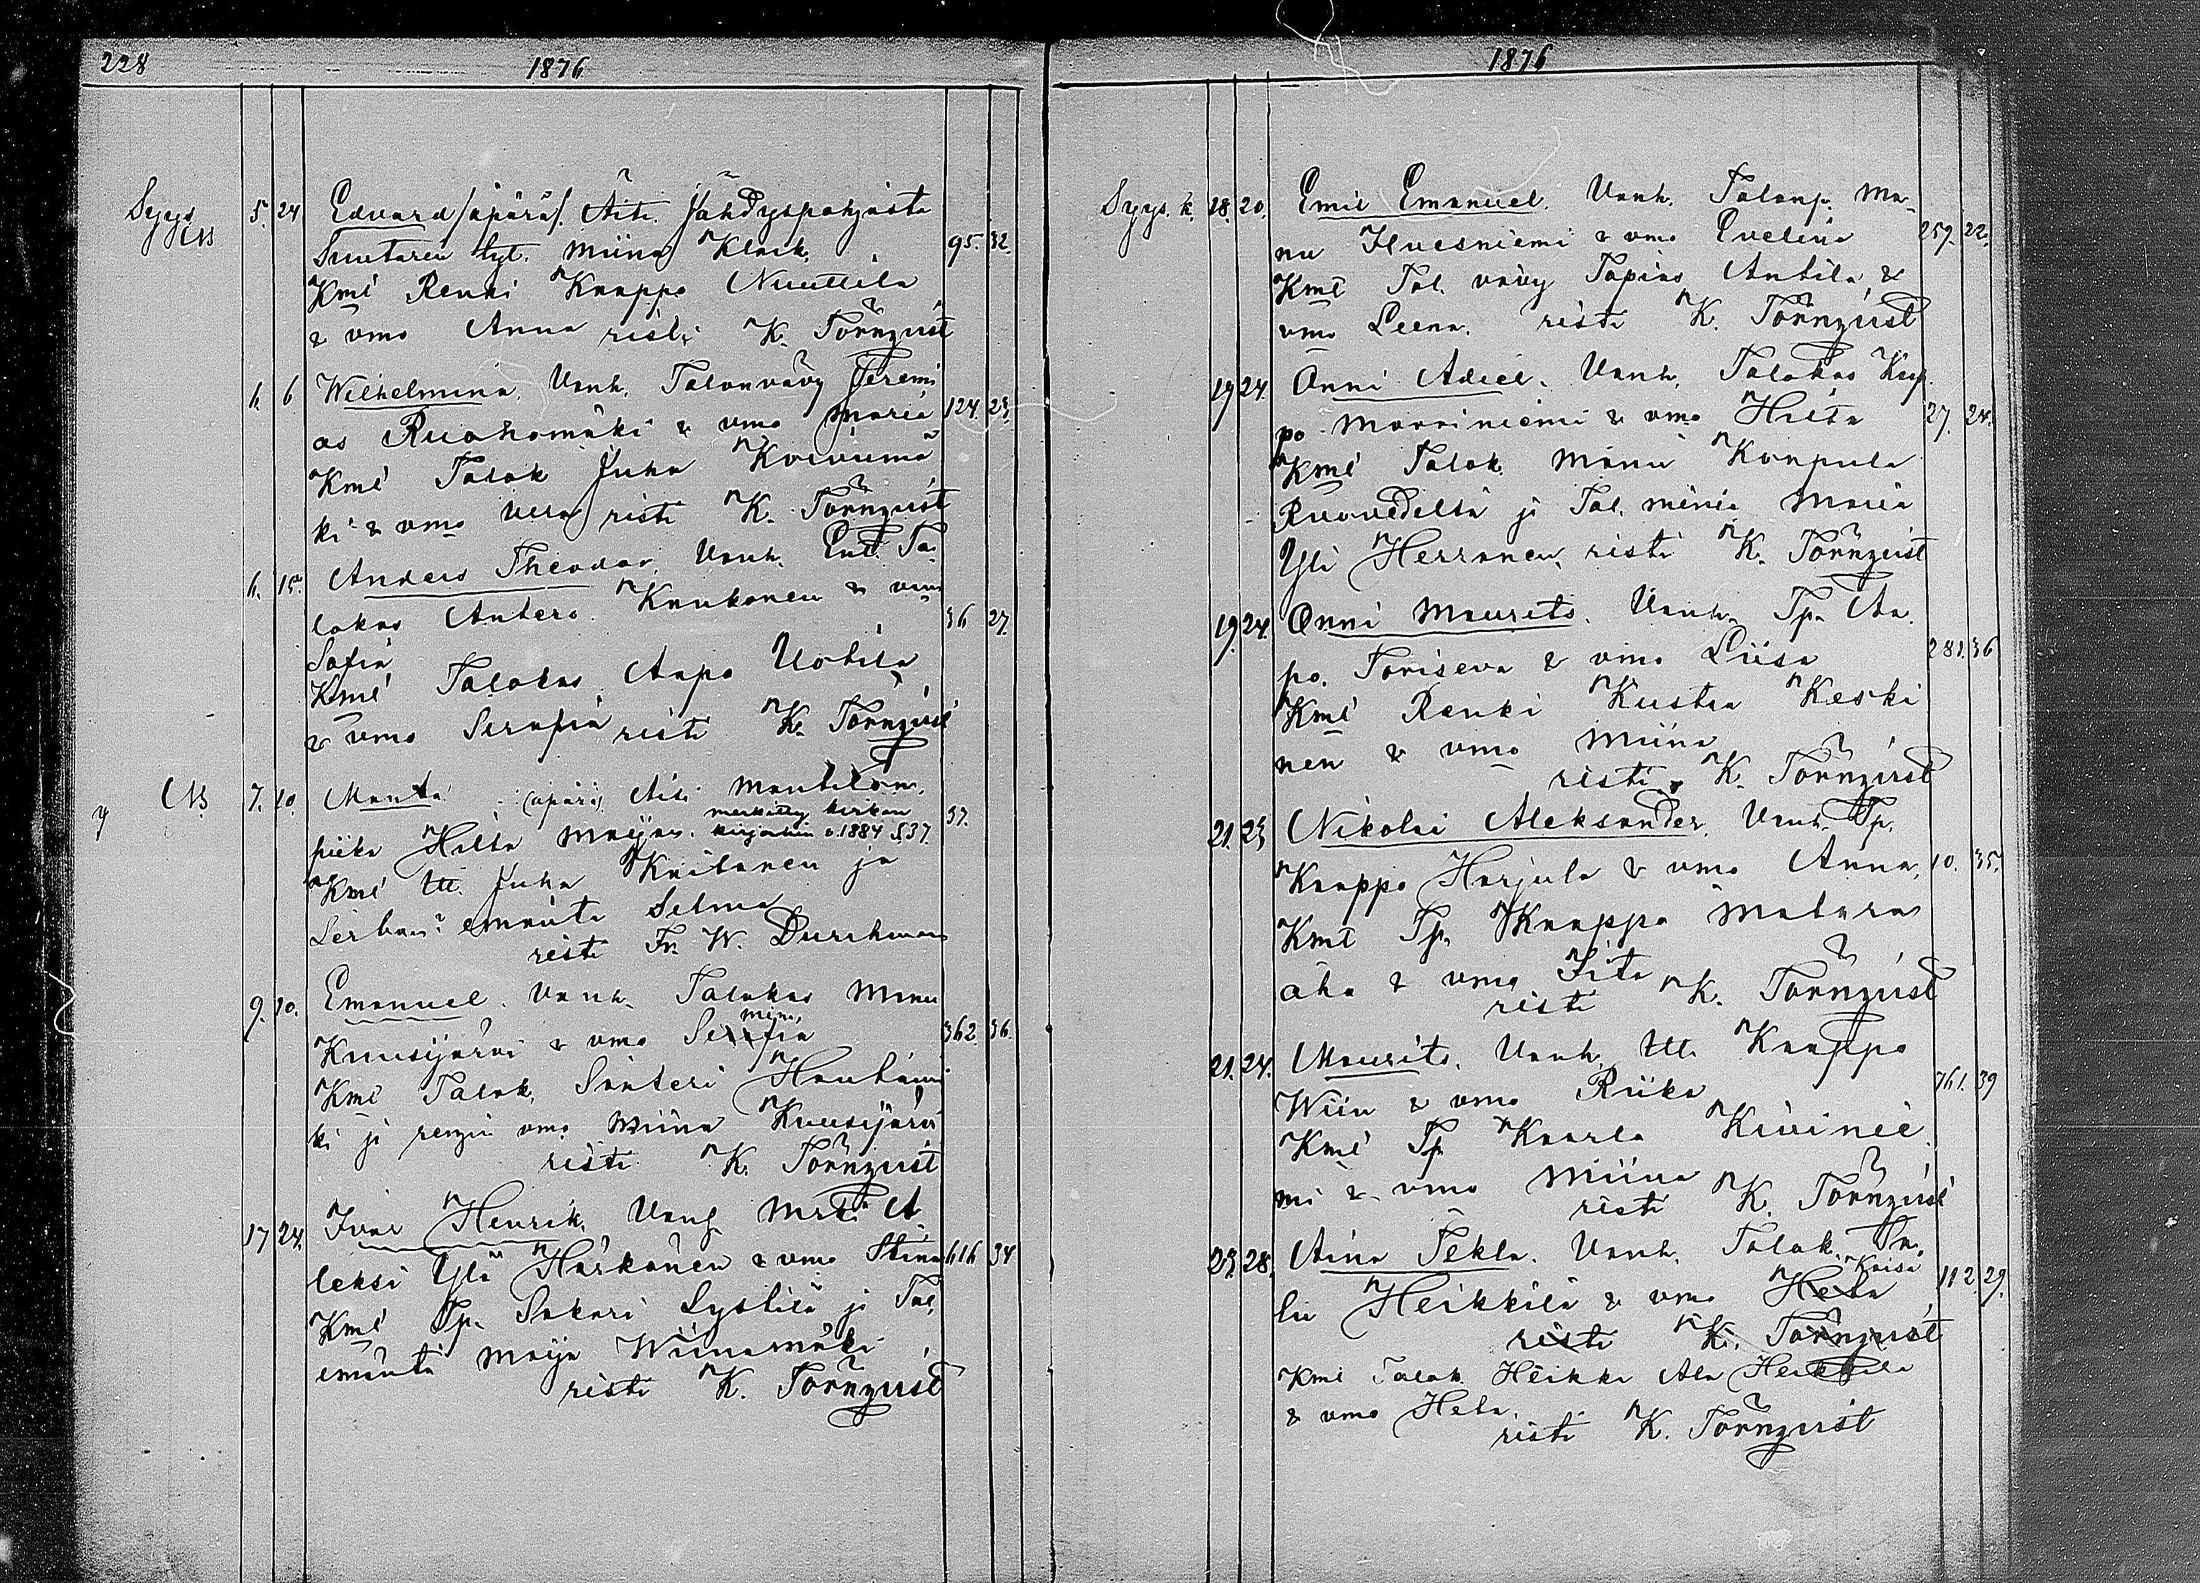 228 1876
Syys 5. 24 Edvard /äpärä/. Äiti. Jähdyspohjasta
Suutarin lyt. Miina Klark. 95. 32.
Kmt Renki Kaappo Nuuttila
& vmo Anna risti K. Törnqvist
6. 6 Wilhelmina. Vanh. Talonvävy Jeremi
as Ruohomäki & vmo Maria 124. 23.
Kmt Talok Juha Koiviima
ki & vmo risti K. Törnqvist
6. 15. Anders Theodor. Vanh. Ent. Ta
lokas Antero. Knukonen & vmo 36 27.
Sofia
Kmt Talokas Aapo Uotila
& vmo Serafia risti K. Törnqvist
7. 10. Manta (äpärä) Äiti Mantilan
piika Hilta Maija. merkitty kirkon kirjoihin v. 1884 S. 37. 37.
Kmt Itl. Juha Knitanen ja
emäntä Selma
risti Fr. W. Durchman
9. 10. Emanuel. Vanh. Talokas Manu
Kuusijärvi & vmo Serafia mina 362 36.
Kmt Talok. Santeri Hautamä
ki ja rengin vmo Miina Kuusijärvi
risti K. Törnqvist
17 24. Ivar Henrik. Vanh. A
leksi Ylä Härkönen & vmo Stina 616 34
Kmt Tp. Sakari Lystilä ja Tal.
emäntä Maija Wiinamäki
risti K. Törnqvist
1876
Syys. k. 18. 20. Emil Emanuel. Vanh. Talonp. Ma-
nu Huesniemi & vmo Evelina 259. 22.
Kmt Tal. vävy Topias Antila &
vmo Leena. risti K. Törnqvist
19 24. Onni Adiel. Vanh. Talokas Kap
po Marriniemi & vmo Hilta 27. 24.
Kmt Talok. Manu Kurpula
Ruovedeltä ja Tal. miniä Maria
Yli Herranen, risti K. Törnqvist
19. 24. Onni Maurits. Vanh. Tp. Aa
po. Toriseva & vmo Liisa 281. 36
Kmt Renki Kustaa Keski
nen & vmo Miina
risti K. Törnqvist
21. 23 Nikolai Aleksander. Vanh. Tp.
Kaappo Harjula & vmo Anna. 10. 35.
Kmt Tp. Kaappo Matara
aho & vmo Iita
risti K. Törnqvist
21. 24. Maurits. Vanh. Itl. Kaappo
Wiin & vmo Riika 761. 39
Kmt Tp Kaarlo Kivinie
mi & vmo Miina
risti K. Törnqvist
23. 28. Aina Tekla. Vanh. Talok.
lu Heikkilä & vmo Heta Kaisa 112. 29.
risti K. Törnqvist
Kmt Talok Heikki Ala Heikkilä
& vmo Heta.
risti K. Törnqvist